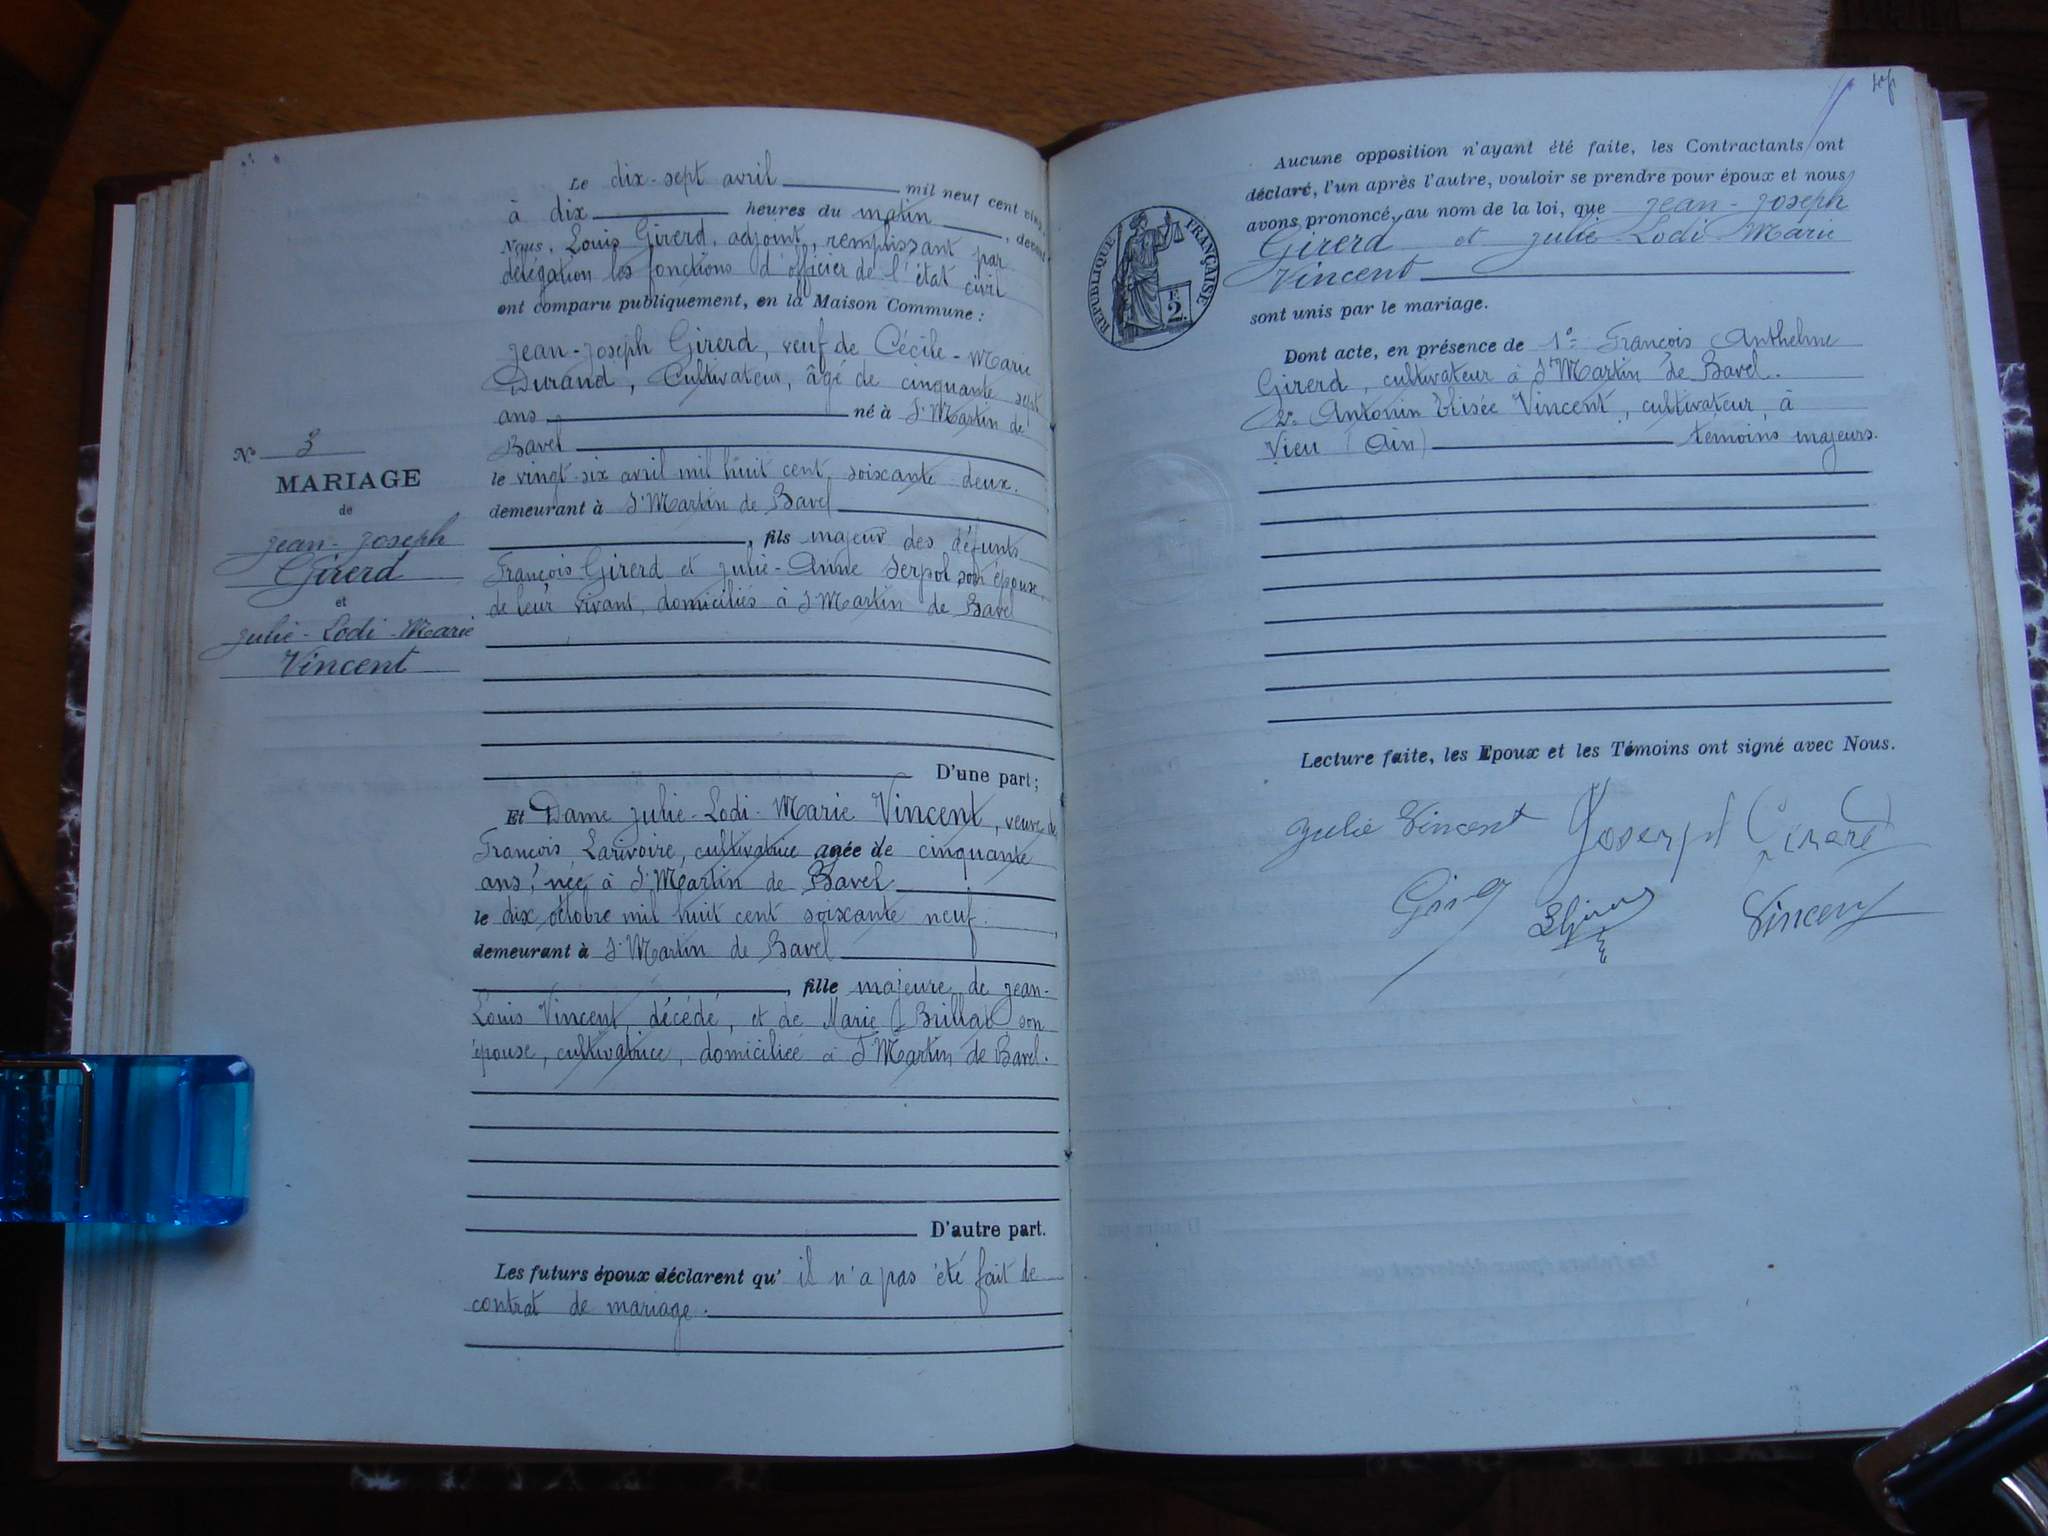 Le dix-sept avril mil neuf cent vingt
à dix heures du matin, devant
Nous, Louis Girerd, adjoint, remplissant par
délégation les fonctions d'officier de l'état civil
ont comparu publiquement, en la Maison Commune :
Jean-Joseph Girerd, veuf de Cécile-Marie
Durand, Cultivateur, âgé de cinquante sept
ans né à St Martin de
Bavel
le vingt-six avril mil huit cent soixante deux.
demeurant à St Martin de Bavel
, fils majeur des défunts
François Girerd et Julie-Anne Serpol son épouse,
de leur vivant, domiciliés à St Martin de Bavel
D'une part ;
No 3
MARIAGE
de
Jean-Joseph
Girerd
et
Julie-Lodi-Marie
Vincent
Et Dame Julie-Lodi-Marie Vincent, veuve de
François Larivoire, cultivatrice agée de cinquante
ans, née à St Martin de Bavel
le dix octobre mil huit cent soixante neuf.
demeurant à St Martin de Bavel
, fille majeure de Jean-
Louis Vincent, décédé, et de Marie Brillat son
épouse, cultivatrice, domiciliée à St Martin de Bavel.
D'autre part.
Les futurs époux déclarent qu' il n'a pas été fait de
contrat de mariage.
RÉPUBLIQUE FRANÇAISE
2
Aucune opposition n'ayant été faite, les Contractants ont
déclaré, l'un après l'autre, vouloir se prendre pour époux et nous
avons prononcé, au nom de la loi, que Jean-Joseph
Girerd et Julie-Lodi-Marie
Vincent
sont unis par le mariage.
Dont acte, en présence de 1º François Anthelme
Girerd, cultivateur à St Martin de Bavel.
2º Antonin Elisée Vincent, cultivateur, à
Vieu (Ain) témoins majeurs.
Lecture faite, les Epoux et les Témoins ont signé avec Nous.
Julie Vincent Joserph Girard
Vincent